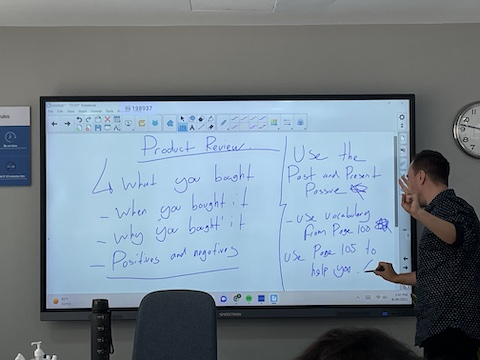 Product Review
What you bought
- When you bought it
- Why you bought it
- Positives and negatives
Use the
Past and Present
Passive
- use vocabulary
from Page 100
use Page 105 to
help you.